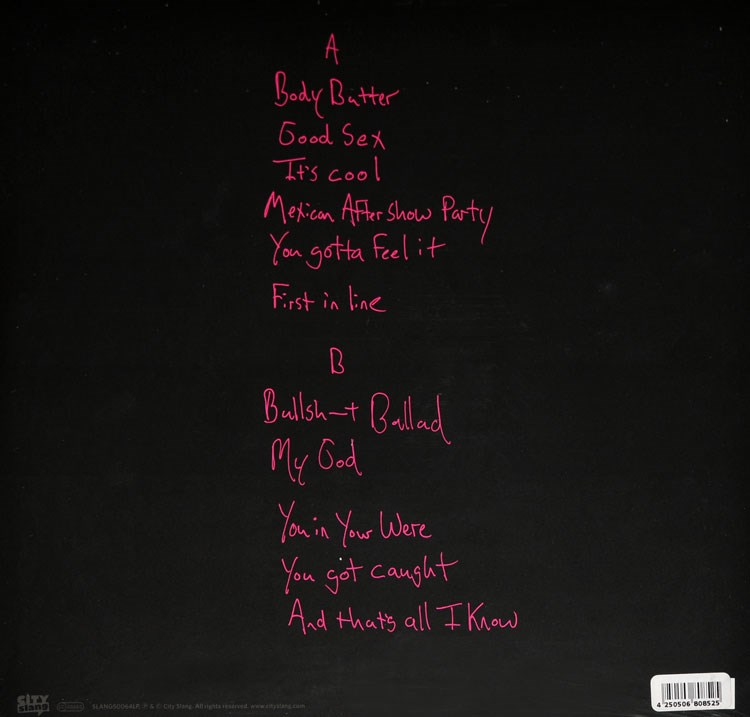 A
Body Butter
Good Sex
It's cool
Mexican AfterShow Party
You gotta Feel it
First in line
B
Bullsh—t Ballad
My God
You in Your Were
You got caught
And that's all I Know
city slang
SLANG50064LP. ℗ & © City Slang. All rights reserved. www.cityslang.com
4 250506 808525